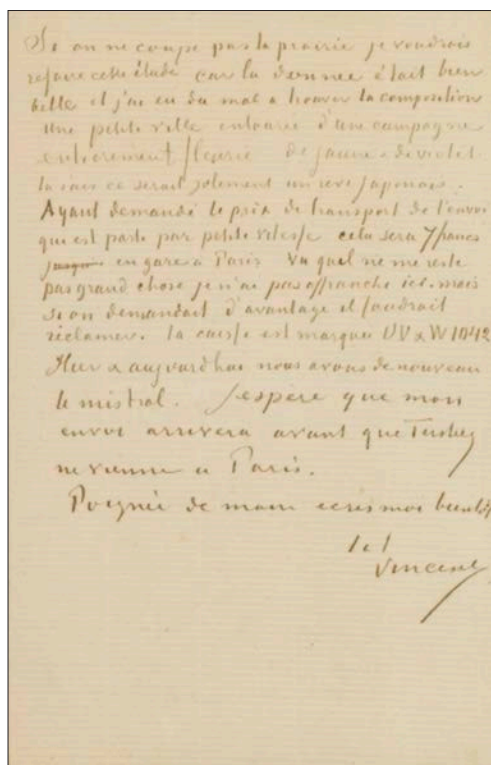 Si on ne coupe pas la prairie je voudrais
refaire cette étude car la donnée était bien
belle et j'ai eu du mal a trouver la composition
une petite ville entourée d'une campagne
entierement fleurie de jaune & de violet
tu sais ce serait joliment un reve japonais.
Ayant demandé le prix de transport de l'envoi
qui est parti par petite vitesse cela sera 7 francs
jusque en gare a Paris Vu qu'il ne me reste
pas grand chose je n'ai pas affranchi ici. mais
si on demandait d'avantage il faudrait
réclamer. la caisse est marquée UV & W 1042
Hier & aujourdhui nous avons de nouveau
le mistral. J'espère que mon
envoi arrivera avant que Tersteeg
ne vienne a Paris.
Poignée de main ecris moi bientôt
t. à t.
Vincent